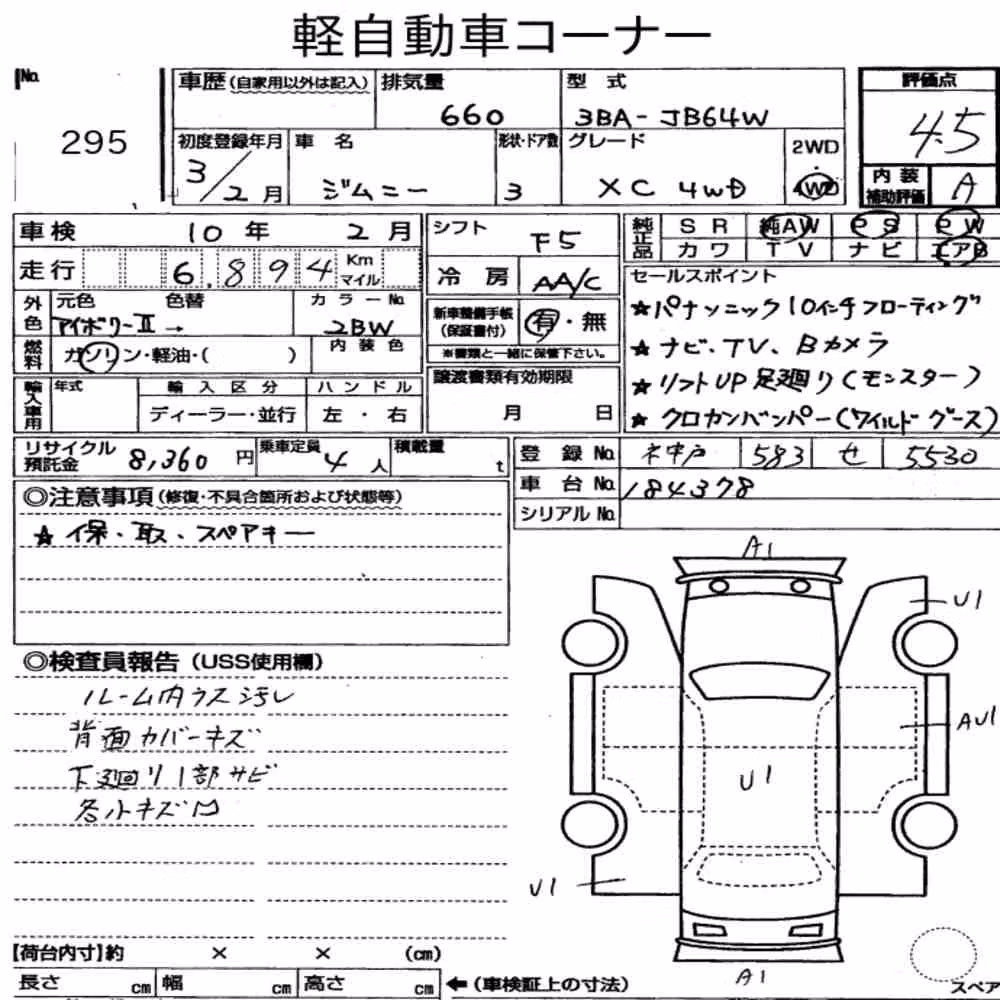 軽自動車コーナー
No. 295
車歴(自家用以外は記入) 排気量 660 型式 3BA-JB64W 評価点 4.5
初度登録年月 3/2月 車名 ジムニー 形状・ドア数 3 グレード XC 4WD 2WD・4WD 内装補助評価 A
車検 10年 2月 シフト F5 純正品 SR 純AW PS PW
走行 6,894 Km マイル 冷房 AA/C カワ TV ナビ エアB
外色 元色 アイボリーII → 色替 カラーNo. 2BW
新車整備手帳(保証書付) 有・無
※書類と一緒に保管下さい。
燃料 ガソリン・軽油・( ) 内装色
輸入車用 年式 輸入区分 ハンドル
ディーラー・並行 左・右
譲渡書類有効期限
月 日
セールスポイント
★パナソニック10インチフローティング
★ナビ、TV、Bカメラ
★リフトUP足廻り(モンスター)
★クロカンバンパー(ワイルドグース)
リサイクル預託金 8,360円 乗車定員 4人 積載量 t
登録No. 神戸 583 せ 5530
車台No. 184378
シリアルNo.
◎注意事項(修復・不具合箇所および状態等)
★保・取、スペアキー
◎検査員報告(USS使用欄)
ルーム内ウス汚レ
背面カバーキズ
下廻り1部サビ
各小キズ凹
A1
U1
AU1
U1
U1
A1
スペア
【荷台内寸】約 × × (cm)
長さ cm 幅 cm 高さ cm ←(車検証上の寸法)